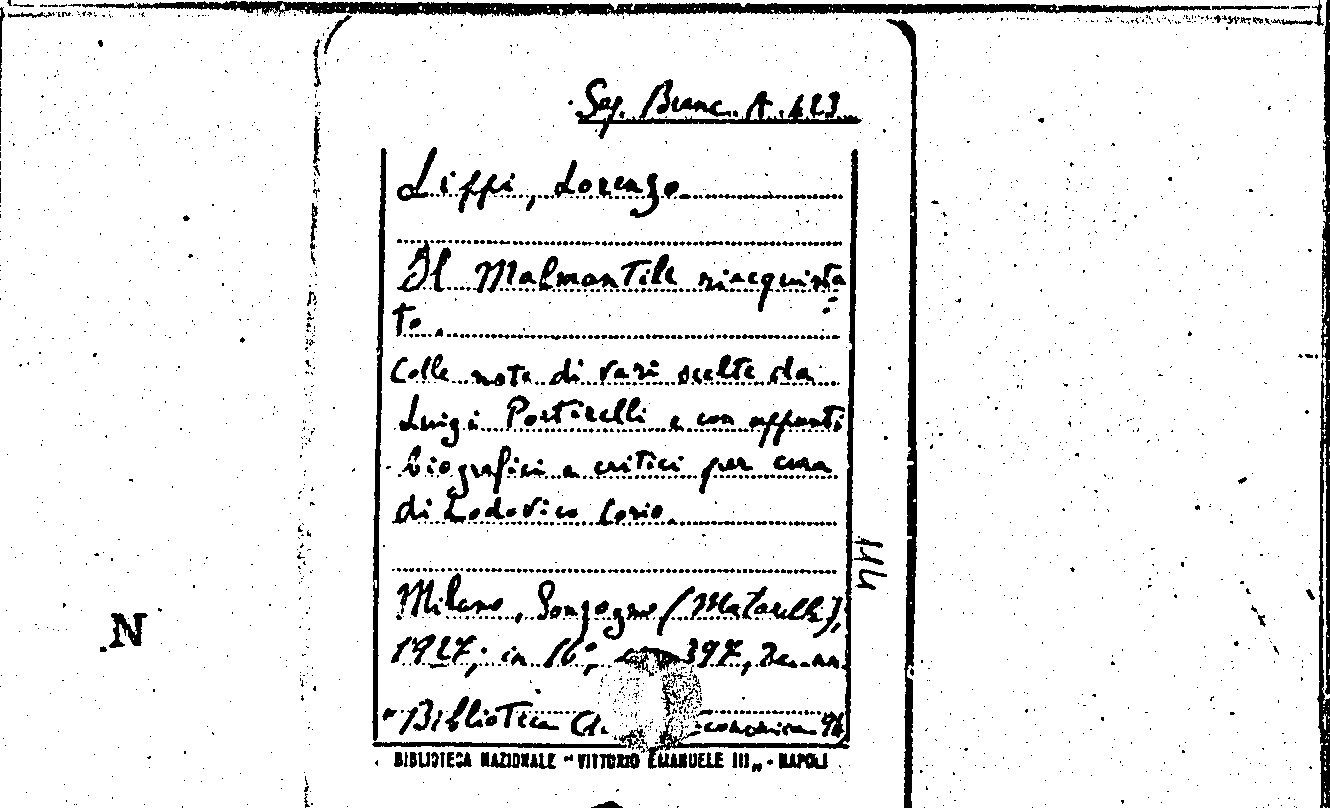 Sep. Branc. A. 423
Lippi, Lorenzo.
Il Malmantile riacquista
to.
Colle note di vari scelte da
Luigi Portirelli e con appunti
biografici e critici per cura
di Lodovico Corio.
144
Milano, Sonzogno (Matarelli),
1927; in 16°, 397,
"Biblioteca economica 96
N
BIBLIOTECA NAZIONALE "VITTORIO EMANUELE III" - NAPOLI